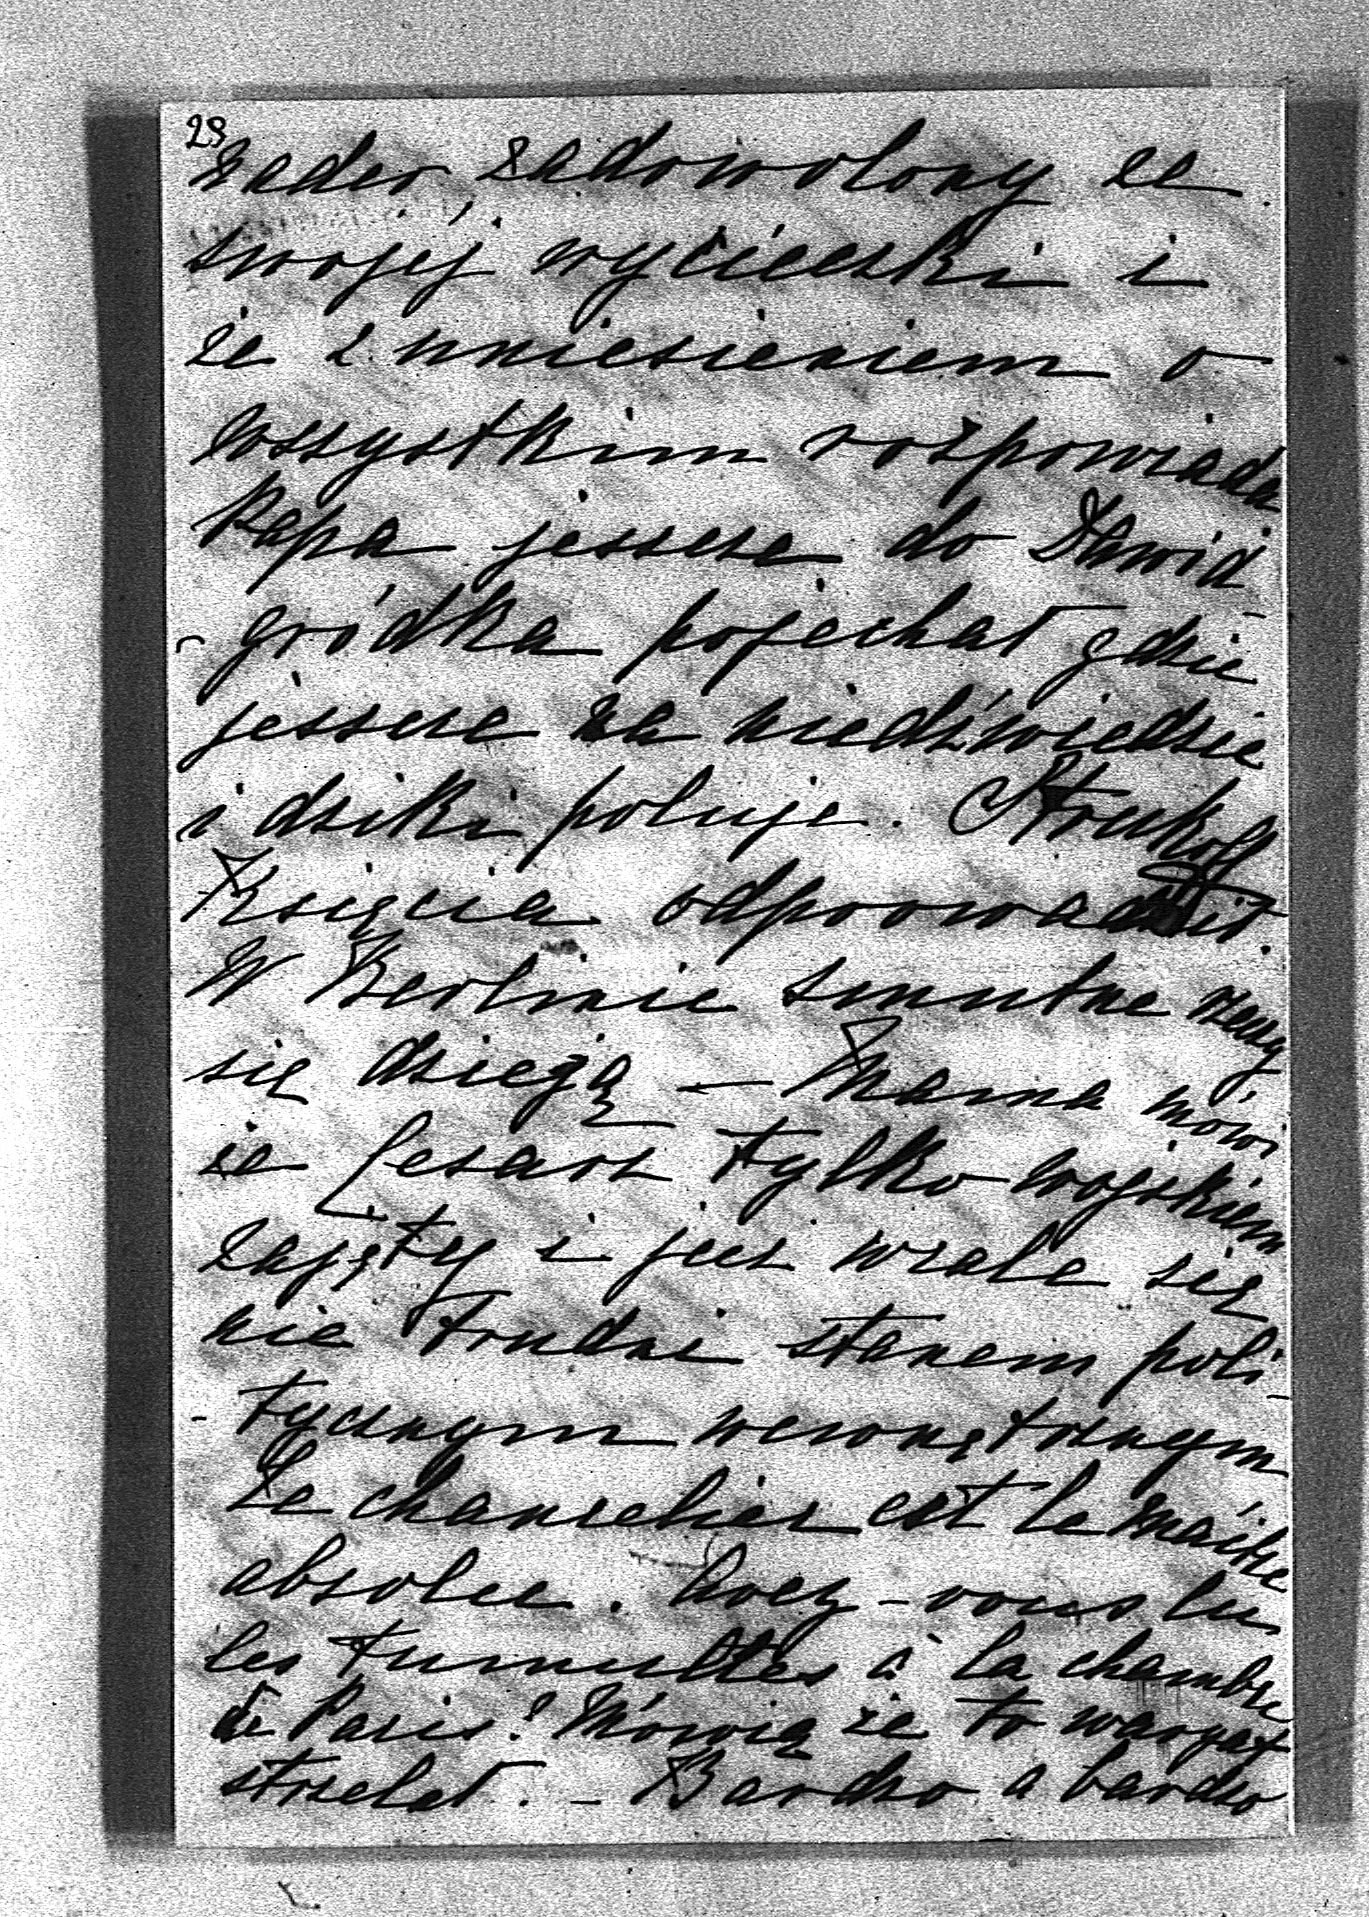 28
nader zadowolony ze
swojej wycieczki i
że z uniesieniem o
wszystkim rozpowiada
Papa jeszcze do Dawid-
-gródka pojechał gdzie
jeszcze na niedźwiedzie
i dziki poluje. Strukoff
Księcia odprowadził.
W Berlinie smutne rzeczy
się dzieją — Mama mówi
że Cesarz tylko wojskiem
zajęty i już wcale się
nie trudni stanem poli-
-tycznym wewnętrznym
Le chancelier est le maître
absolu. Avez-vous lu
les tumultes à la chambre
de Paris? Mówią że to waryat
strzelał. — Bardzo a bardzo